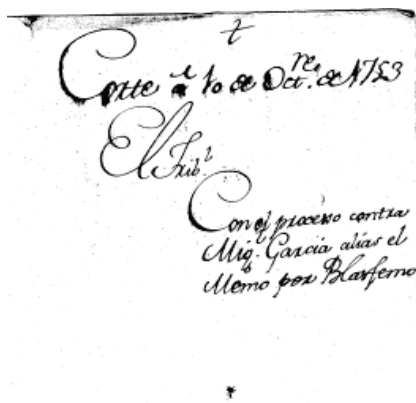 Corte a 10 de Oct.re de 1753
El Trib.l
Con el proceso contra
Mig.l Garcia alias el
Memo por Blasfemo